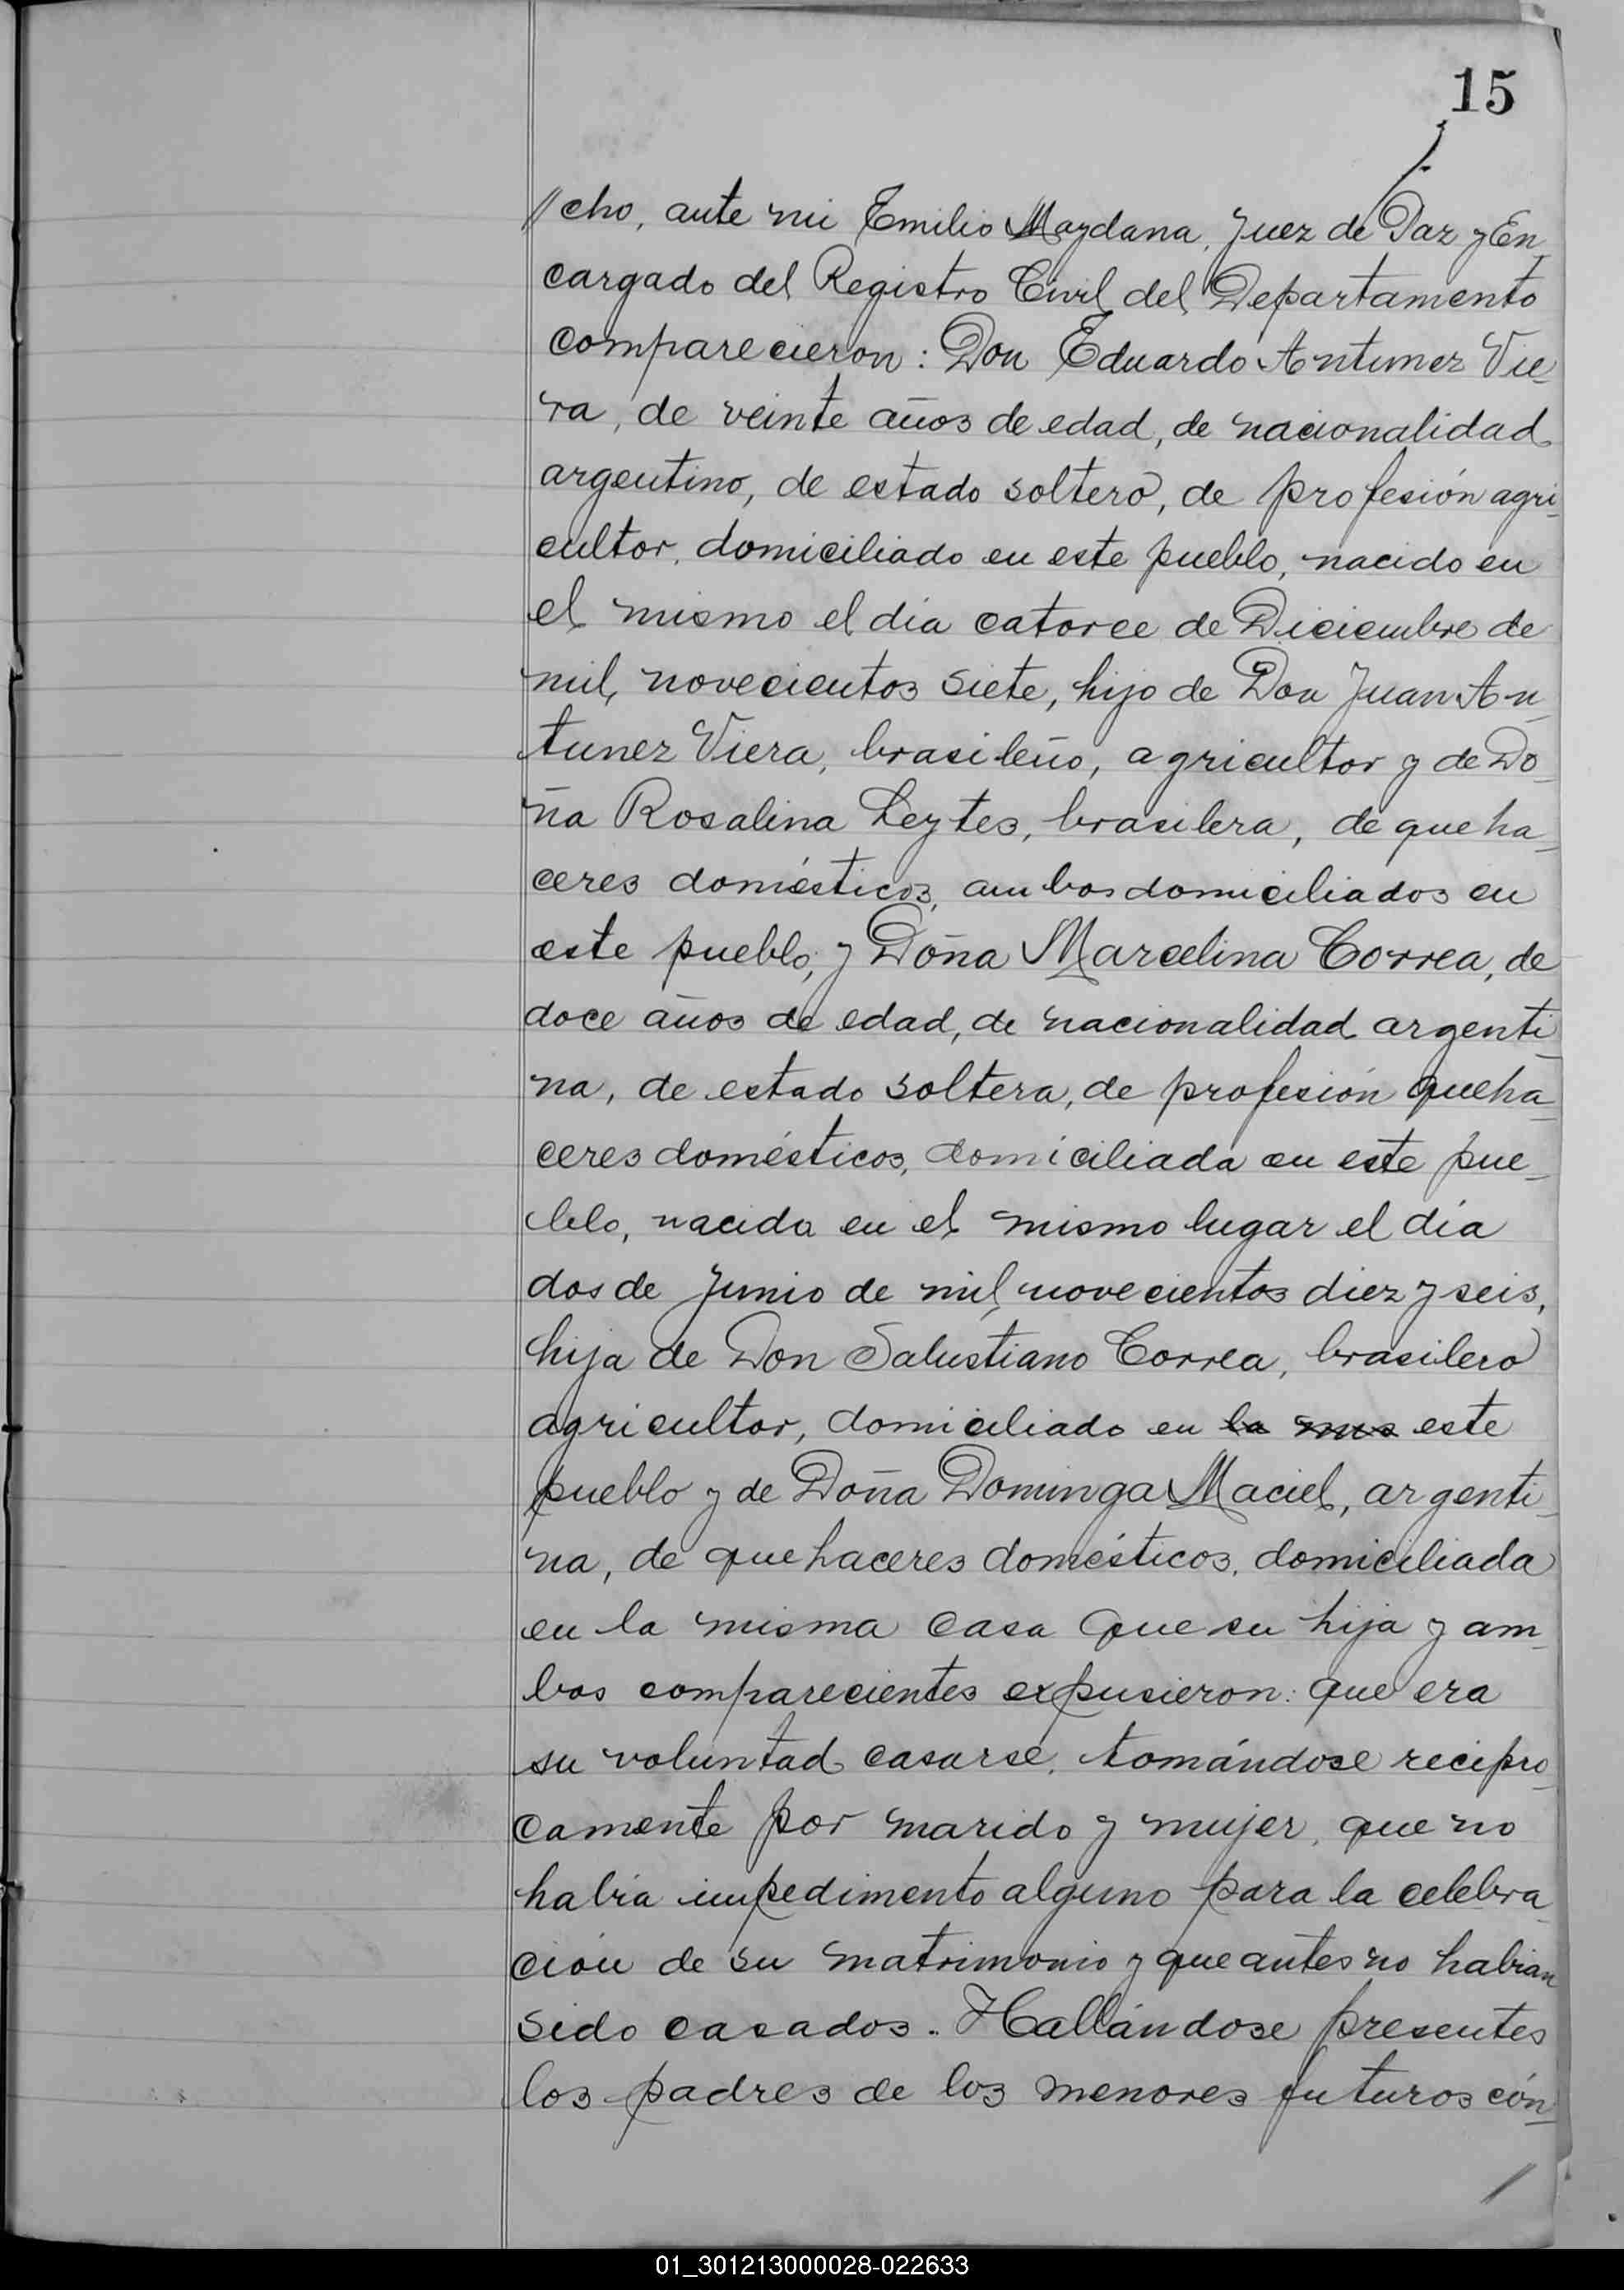 15
//cho, ante mi Emilio Maydana, Juez de Paz y En_
cargado del Registro Civil del Departamento
comparecieron: Don Eduardo Antunez Vie_
ra, de veinte años de edad, de nacionalidad
argentino, de estado soltero, de profesión agri_
cultor, domiciliado en este pueblo, nacido en
el mismo el día catorce de Diciembre de
mil novecientos siete, hijo de Don Juan An_
tunez Viera, brasileño, agricultor y de Do_
ña Rosalina Leytes, brasilera, de queha_
ceres domésticos, ambos domiciliados en
este pueblo; y Doña Marcelina Correa, de
doce años de edad, de nacionalidad argenti_
na, de estado soltera, de profesión queha_
ceres domésticos, domiciliada en este pue_
blo, nacida en el mismo lugar el día
dos de Junio de mil novecientos diez y seis,
hija de Don Salustiano Correa, brasilero
agricultor, domiciliado en la mis este
pueblo y de Doña Dominga Maciel, argenti_
na, de quehaceres domésticos, domiciliada
en la misma casa que su hija y am_
bos comparecientes expusieron: que era
su voluntad casarse, tomándose recipro_
camente por marido y mujer, que no
había impedimento alguno para la celebra_
ción de su matrimonio y que antes no habian
sido casados. Hallándose presentes
los padres de los menores futuros cón_
01_301213000028-022633